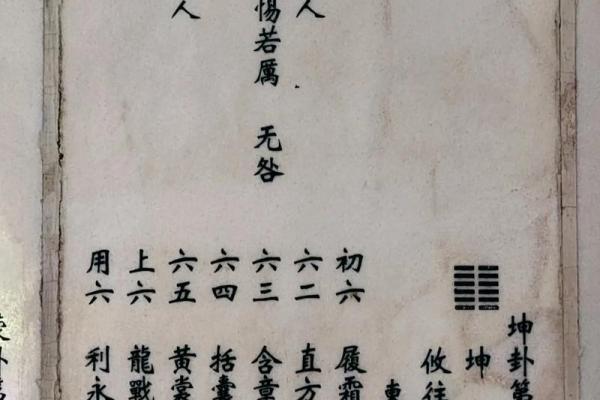 人
惕若厲 无咎
人
坤卦第
坤
攸往
初六 履霜
六二 直方
六三 含章
六四 括囊
六五 黃裳
上六 龍戰
用六 利永